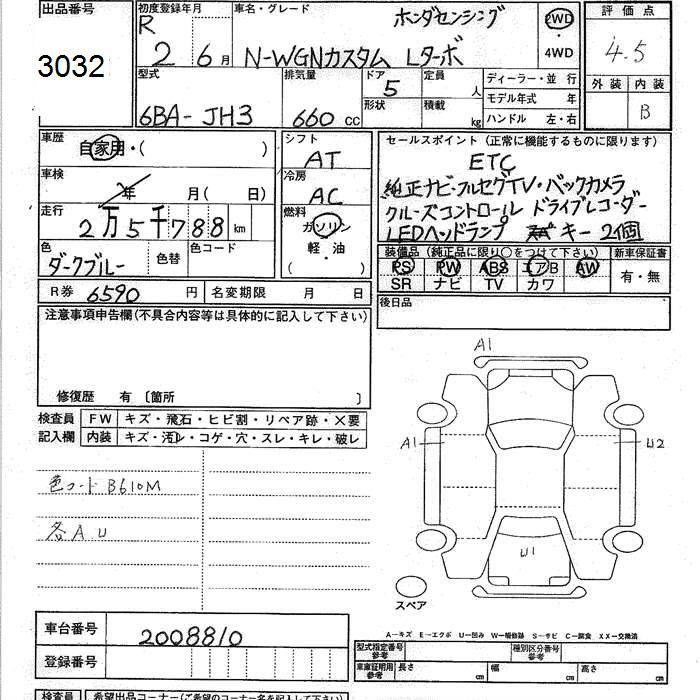 出品番号
3032
初度登録年月
R 2 6月
車名・グレード
ホンダセンシング
N-WGNカスタム Lターボ
2WD・4WD
評価点
4.5
外装 内装
B
型式
6BA-JH3
排気量
660 cc
ドア
5
形状
定員
人
積載
kg
ディーラー・並行
モデル年式 年
ハンドル 左・右
車歴
自家用・( )
車検
年 月( 日)
走行
2万5千788 km
色
ダークブルー
色替
色コード
シフト
AT
冷房
AC
燃料
ガソリン
軽・油
( )
セールスポイント(正常に機能するものに限ります)
ETC
純正ナビ・フルセグTV・バックカメラ
クルーズコントロール ドライブレコーダー
LEDヘッドランプ キー2個
装備品(純正品に限り○をつけて下さい)
PS PW ABS エアB AW
SR ナビ TV カワ
新車保証書
有・無
R券 6590 円
名変期限 月 日
後日品
注意事項申告欄(不具合内容等は具体的に記入して下さい)
修復歴 有 〔箇所 〕
検査員記入欄
FW キズ・飛石・ヒビ割・リペア跡・X要
内装 キズ・汚れ・コゲ・穴・スレ・キレ・破レ
色コード B610M
各A U
A1
A1
U2
U1
スペア
A-キズ E-エクボ U-凹み W-補修跡 S-サビ C-腐食 XX-交換済
車台番号
2008810
登録番号
型式指定番号 参考
種別区分番号 参考
車庫証明用 参考
長さ cm
幅 cm
高さ cm
検査員
希望出品コーナー(ご希望のコーナー名を記入下さい)